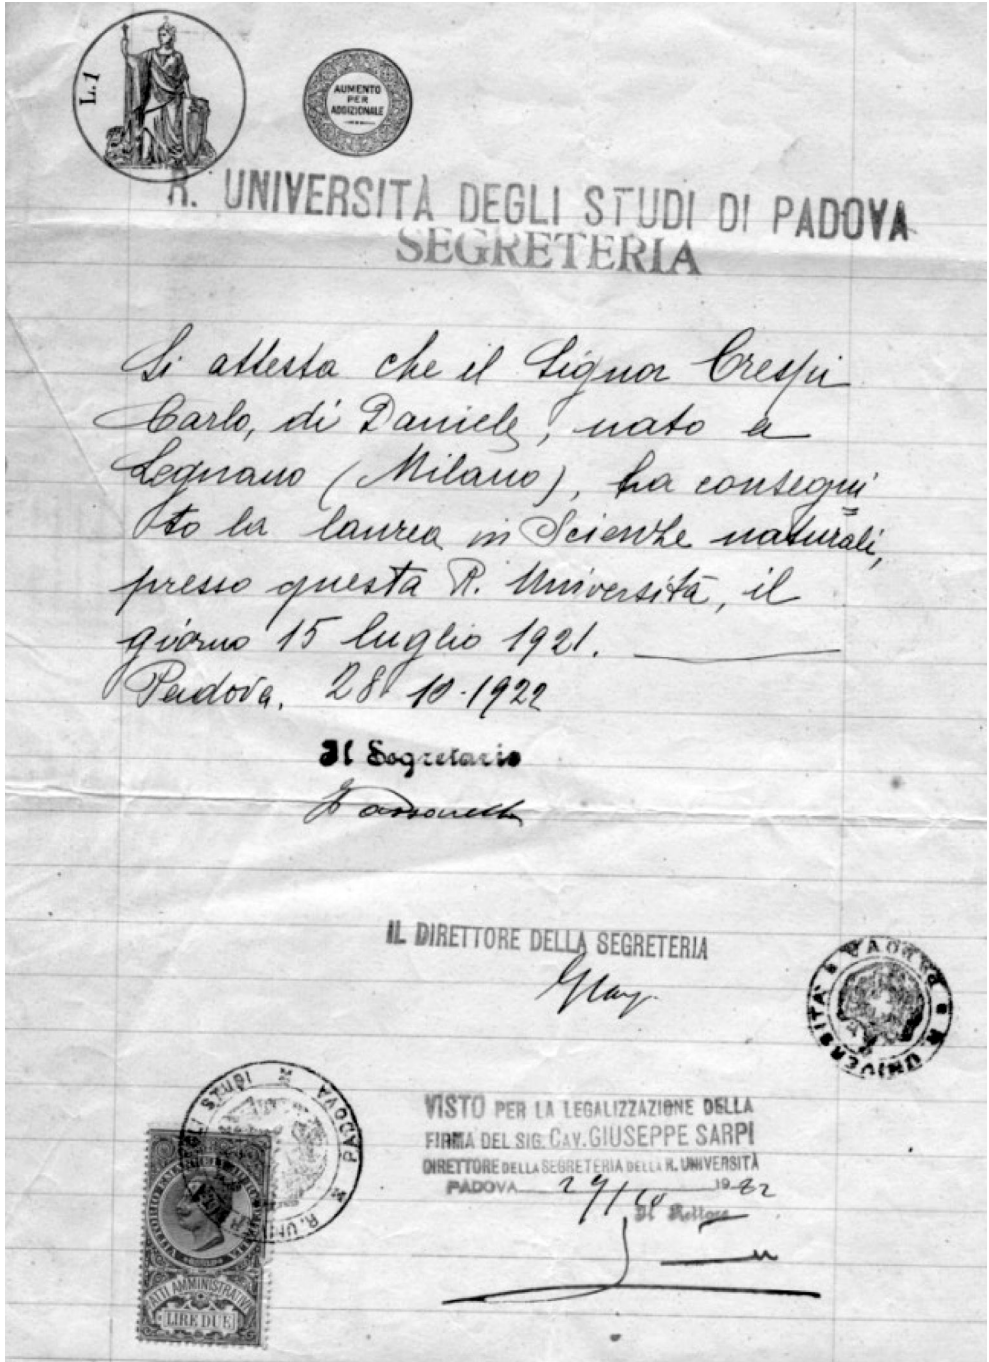 L. 1
AUMENTO
PER
ADDIZIONALE
R. UNIVERSITÀ DEGLI STUDI DI PADOVA
SEGRETERIA
Si attesta che il Signor Crespi
Carlo, di Daniele, nato a
Legnano (Milano), ha consegui
to la laurea in Scienze naturali,
presso questa R. Università, il
giorno 15 luglio 1921.
Padova, 28-10-1922
Il Segretario
IL DIRETTORE DELLA SEGRETERIA
R. UNIVERSITÀ PADOVA
VISTO PER LA LEGALIZZAZIONE DELLA
FIRMA DEL SIG. CAV. GIUSEPPE SARPI
DIRETTORE DELLA SEGRETERIA DELLA R. UNIVERSITÀ
PADOVA 29/10 1922
Il Rettore
PADOVA
ATTI AMMINISTRATIVI
LIRE DUE